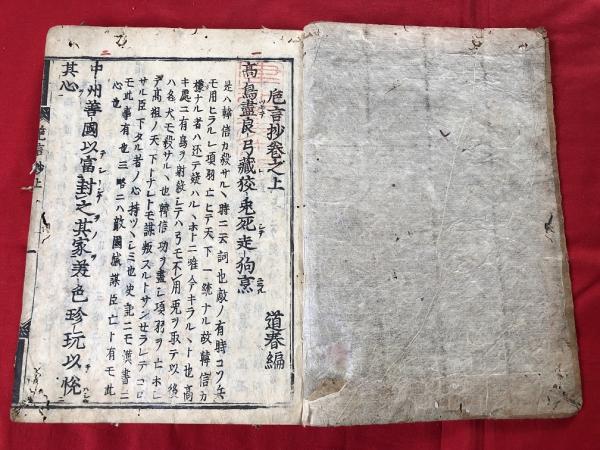 巵言抄巻之上
道春編
高鳥盡良弓藏狡兎死走狗烹
是ハ韓信カ殺サルヽ時ニ云詞也敵ノ有時コソ兵
モ用ヒラルレ項羽亡ヒテ天下一統ナル故韓信カ
様ナル者ハ还テ疑ハルヽホトニ唯今キラルヽト也高
キ處ニ有鳥ヲ射殺シテハ弓モ不用兎ヲ取テ以後
ハ名犬モ殺サルヽ也韓信功ヲ盡シ項羽ヲ亡ホシ
テ高祖ノ天下トナレトモ謀叛スルトサンセラレテコロ
サル臣下タル者ノ心持ツヽシミ也史記ニモ漢書ニ
モ此事有也三略ニハ敵國滅謀臣亡ト有モ此
心也
中州善國以富封之其家美色珍玩以悦
其心
巵言抄上
一
二